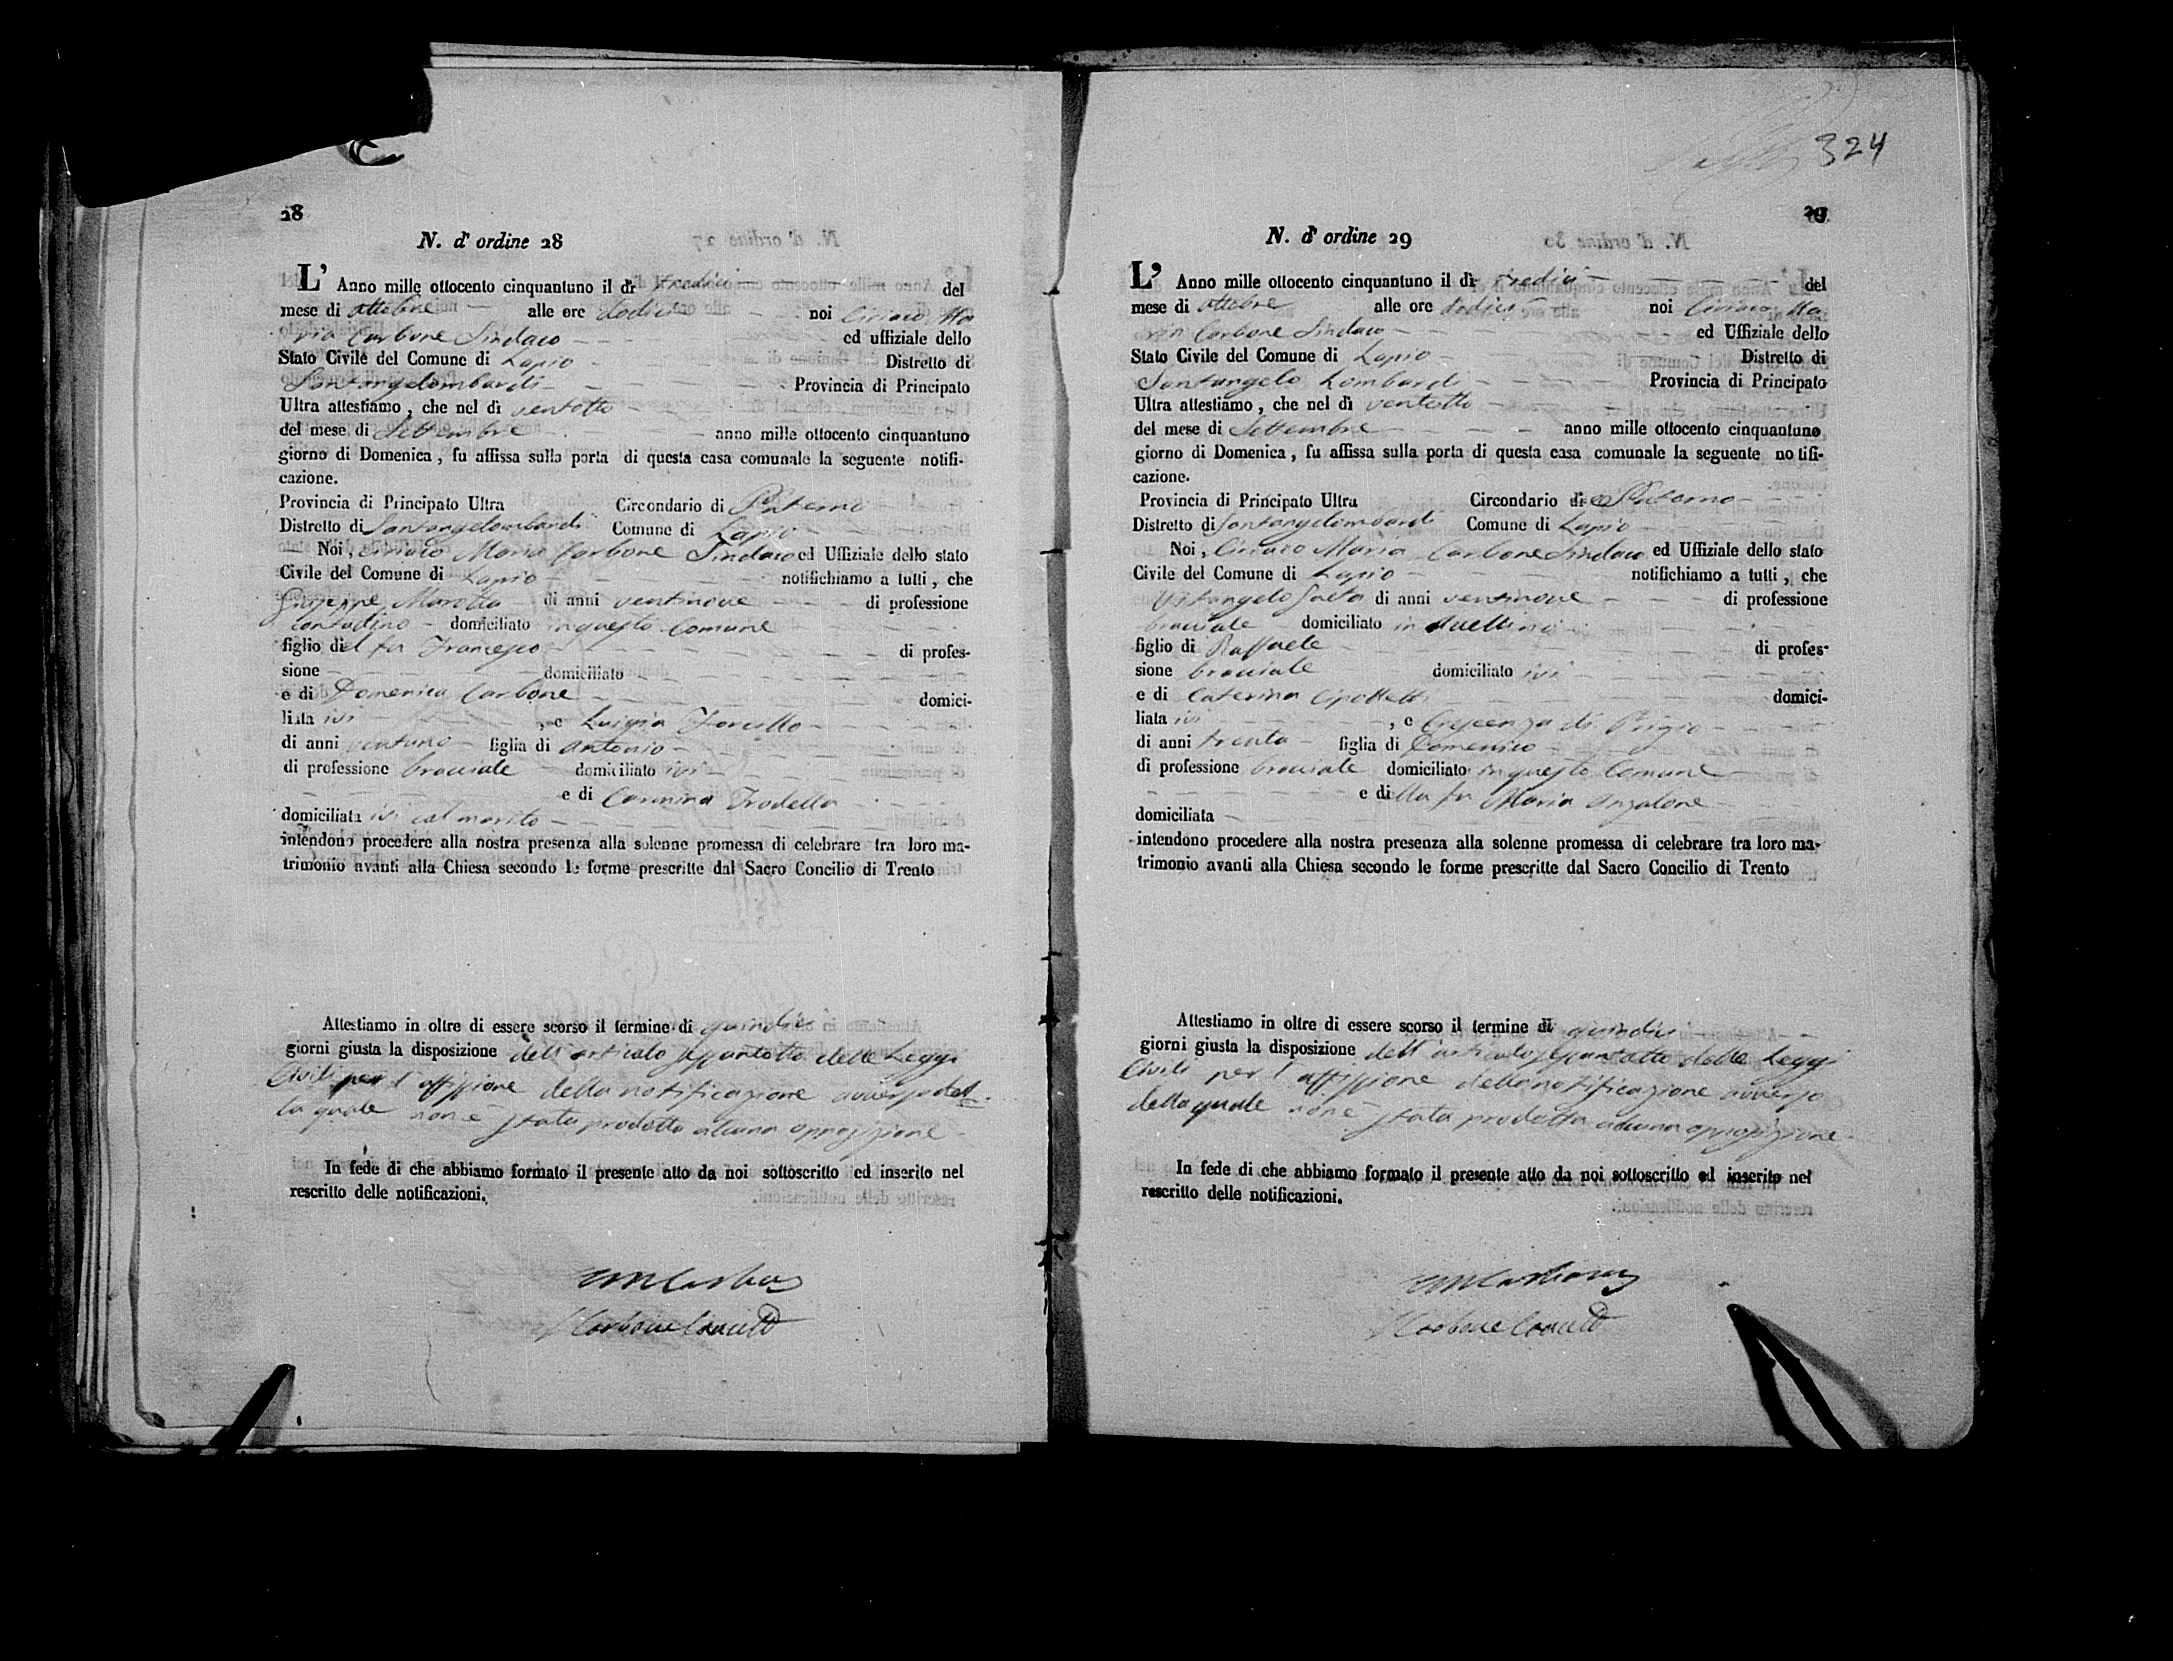 28
N. d' ordine 28
L' Anno mille ottocento cinquantuno il dì tredici del
mese di ottobre alle ore dodici noi Ciriaco Ma
ria Carbone Sindaco ed uffiziale dello
Stato Civile del Comune di Lapio Distretto di
Santangelombardi Provincia di Principato
Ultra attestiamo, che nel dì ventotto
del mese di Settembre anno mille ottocento cinquantuno
giorno di Domenica, fu affissa sulla porta di questa casa comunale la seguente notifi-
cazione.
Provincia di Principato Ultra Circondario di Paterno
Distretto di Santangelombardi Comune di Lapio
Noi, Ciriaco Maria Carbone Sindaco ed Uffiziale dello stato
Civile del Comune di Lapio notifichiamo a tutti, che
Giuseppe Marotta di anni ventinove di professione
contadino domiciliato in questo Comune
figlio del fu Francesco di profes-
sione domiciliato
e di Domenica Carbone domici-
liata ivi , e Luigia
di anni ventuno figlia di Antonio
di professione bracciale domiciliato ivi
e di Carmina
domiciliata ivi col marito
intendono procedere alla nostra presenza alla solenne promessa di celebrare tra loro ma-
trimonio avanti alla Chiesa secondo le forme prescritte dal Sacro Concilio di Trento
Attestiamo in oltre di essere scorso il termine di quindici
giorni giusta la disposizione dell'articolo settantotto delle Leggi
Civili per l'affissione della notificazione avverso del
la quale non è stata prodotta alcuna opposizione
In fede di che abbiamo formato il presente atto da noi sottoscritto ed inserito nel
rescritto delle notificazioni.
CMCarbone
Carbone
324
29
N. d' ordine 29
L' Anno mille ottocento cinquantuno il dì tredici del
mese di ottobre alle ore dodici noi Ciriaco Ma
ria Carbone Sindaco ed Uffiziale dello
Stato Civile del Comune di Lapio Distretto di
Santangelo Lombardi Provincia di Principato
Ultra attestiamo, che nel dì ventotto
del mese di Settembre anno mille ottocento cinquantuno
giorno di Domenica, fu affissa sulla porta di questa casa comunale la seguente notifi-
cazione.
Provincia di Principato Ultra Circondario di Paterno
Distretto di Santangelombardi Comune di Lapio
Noi, Ciriaco Maria Carbone Sindaco ed Uffiziale dello stato
Civile del Comune di Lapio notifichiamo a tutti, che
Vitangelo Saeta di anni ventinove di professione
bracciale domiciliato in Avellino
figlio di Raffaele di profes-
sione bracciale domiciliato ivi
e di Caterina domici-
liata ivi , e Crescenza di Prizio
di anni trenta figlia di Domenico
di professione bracciale domiciliato in questo Comune
e della fu Maria Anzalone
domiciliata
intendono procedere alla nostra presenza alla solenne promessa di celebrare tra loro ma-
trimonio avanti alla Chiesa secondo le forme prescritte dal Sacro Concilio di Trento
Attestiamo in oltre di essere scorso il termine di quindici
giorni giusta la disposizione dell'articolo settantotto delle Leggi
Civili per l'affissione della notificazione avverso
della quale non è stata prodotta alcuna opposizione
In fede di che abbiamo formato il presente atto da noi sottoscritto ed inserito nel
rescritto delle notificazioni.
CMCarbone
Carbone